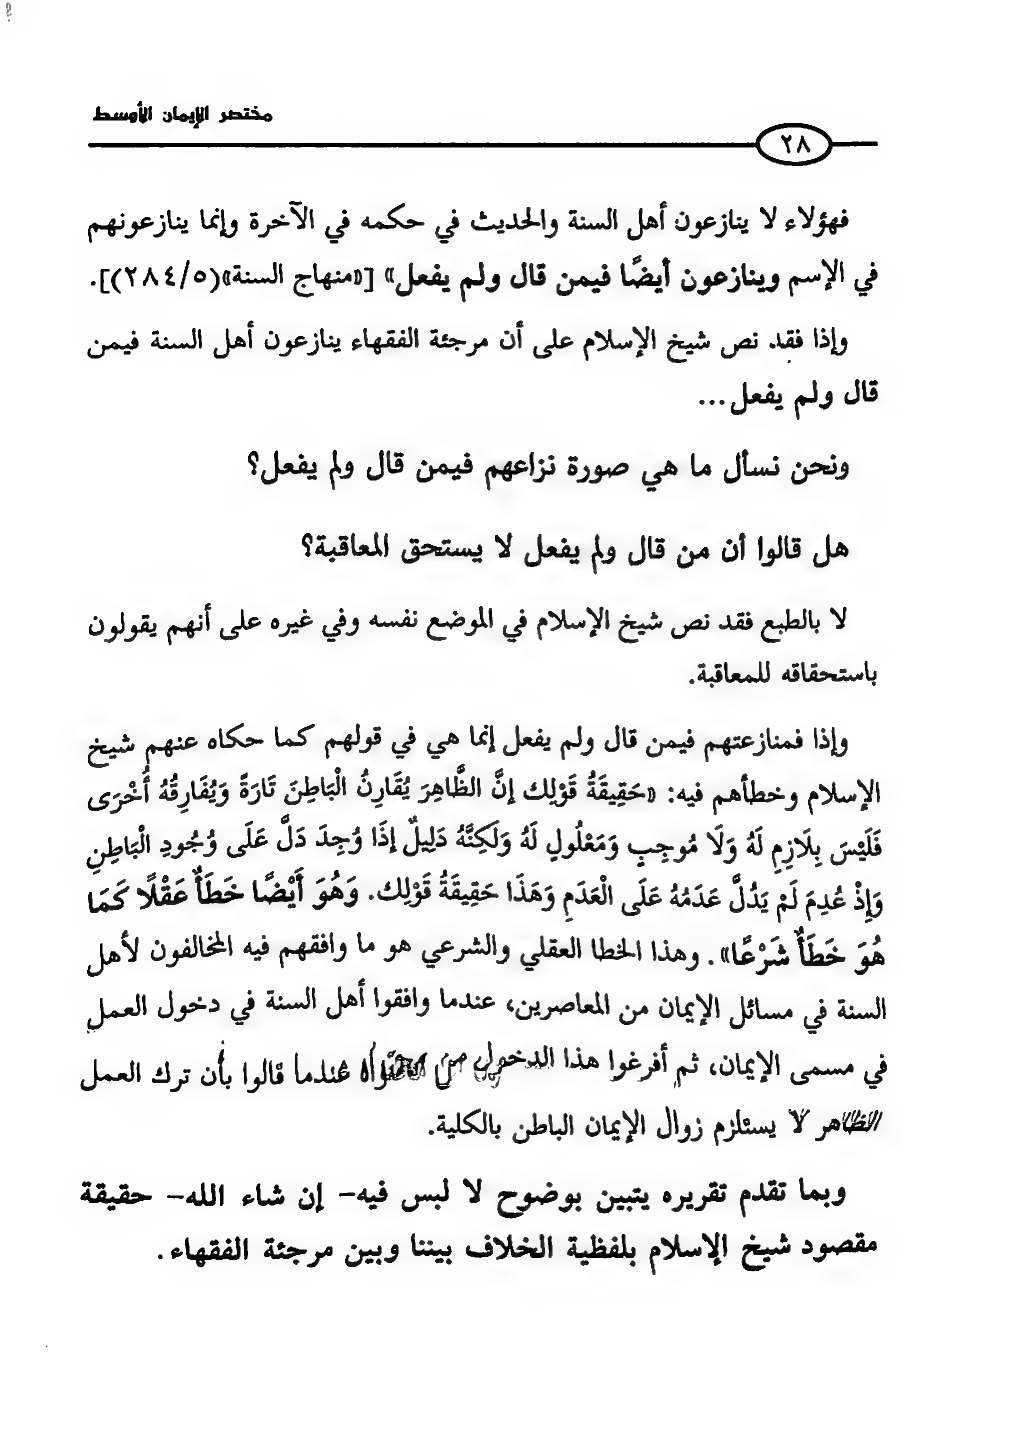 مختصر الإيمان الأوسط
٢٨
فهؤلاء لا ينازعون أهل السنة والحديث في حكمه في الآخرة وإنما ينازعونهم
في الإسم وينازعون أيضًا فيمن قال ولم يفعل» [«منهاج السنة»(٢٨٤/٥)].
وإذا فقد نص شيخ الإسلام على أن مرجئة الفقهاء ينازعون أهل السنة فيمن
قال ولم يفعل...
ونحن نسأل ما هي صورة نزاعهم فيمن قال ولم يفعل؟
هل قالوا أن من قال ولم يفعل لا يستحق المعاقبة؟
لا بالطبع فقد نص شيخ الإسلام في الموضع نفسه وفي غيره على أنهم يقولون
باستحقاقه للمعاقبة.
وإذا فمنازعتهم فيمن قال ولم يفعل إنما هي في قولهم كما حكاه عنهم شيخ
الإسلام وخطأهم فيه: «حَقِيقَةُ قَوْلِك إنَّ الظَّاهِرَ يُقَارِنُ الْبَاطِنَ تَارَةً وَيُفَارِقُهُ أُخْرَى
فَلَيْسَ بِلَازِمِ لَهُ وَلَا مُوجِبٍ وَمَعْلُولٍ لَهُ وَلَكِنَّهُ دَلِيلٌ إذَا وُجِدَ دَلَّ عَلَى وُجُودِ الْبَاطِنِ
وَإِذْ عُدِمَ لَمْ يَدُلَّ عَدَمُهُ عَلَى الْعَدَمِ وَهَذَا حَقِيقَةُ قَوْلِك. وَهُوَ أَيْضًا خَطَأٌ عَقْلًا كَمَا
هُوَ خَطَأٌ شَرْعًا» . وهذا الخطا العقلي والشرعي هو ما وافقهم فيه المخالفون لأهل
السنة في مسائل الإيمان من المعاصرين، عندما وافقوا أهل السنة في دخول العمل
في مسمى الإيمان، ثم أفرغوا هذا الدخول من عندما قالوا بأن ترك العمل
الظاهر لا يستلزم زوال الإيمان الباطن بالكلية.
وبما تقدم تقريره يتبين بوضوح لا لبس فيه- إن شاء الله- حقيقة
مقصود شيخ الإسلام بلفظية الخلاف بيننا وبين مرجئة الفقهاء.